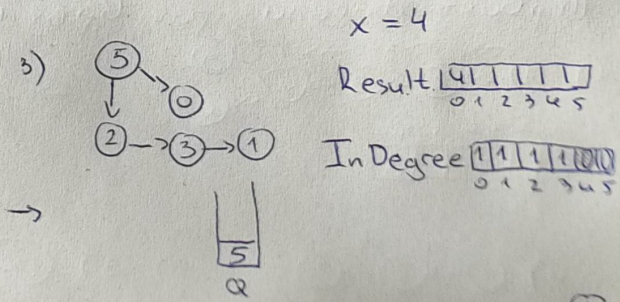 x = 4
3)
5
0
2 3 1
Result 4
0 1 2 3 4 5
InDegree 1 1 1 1 0 0
0 1 2 3 4 5
5
Q